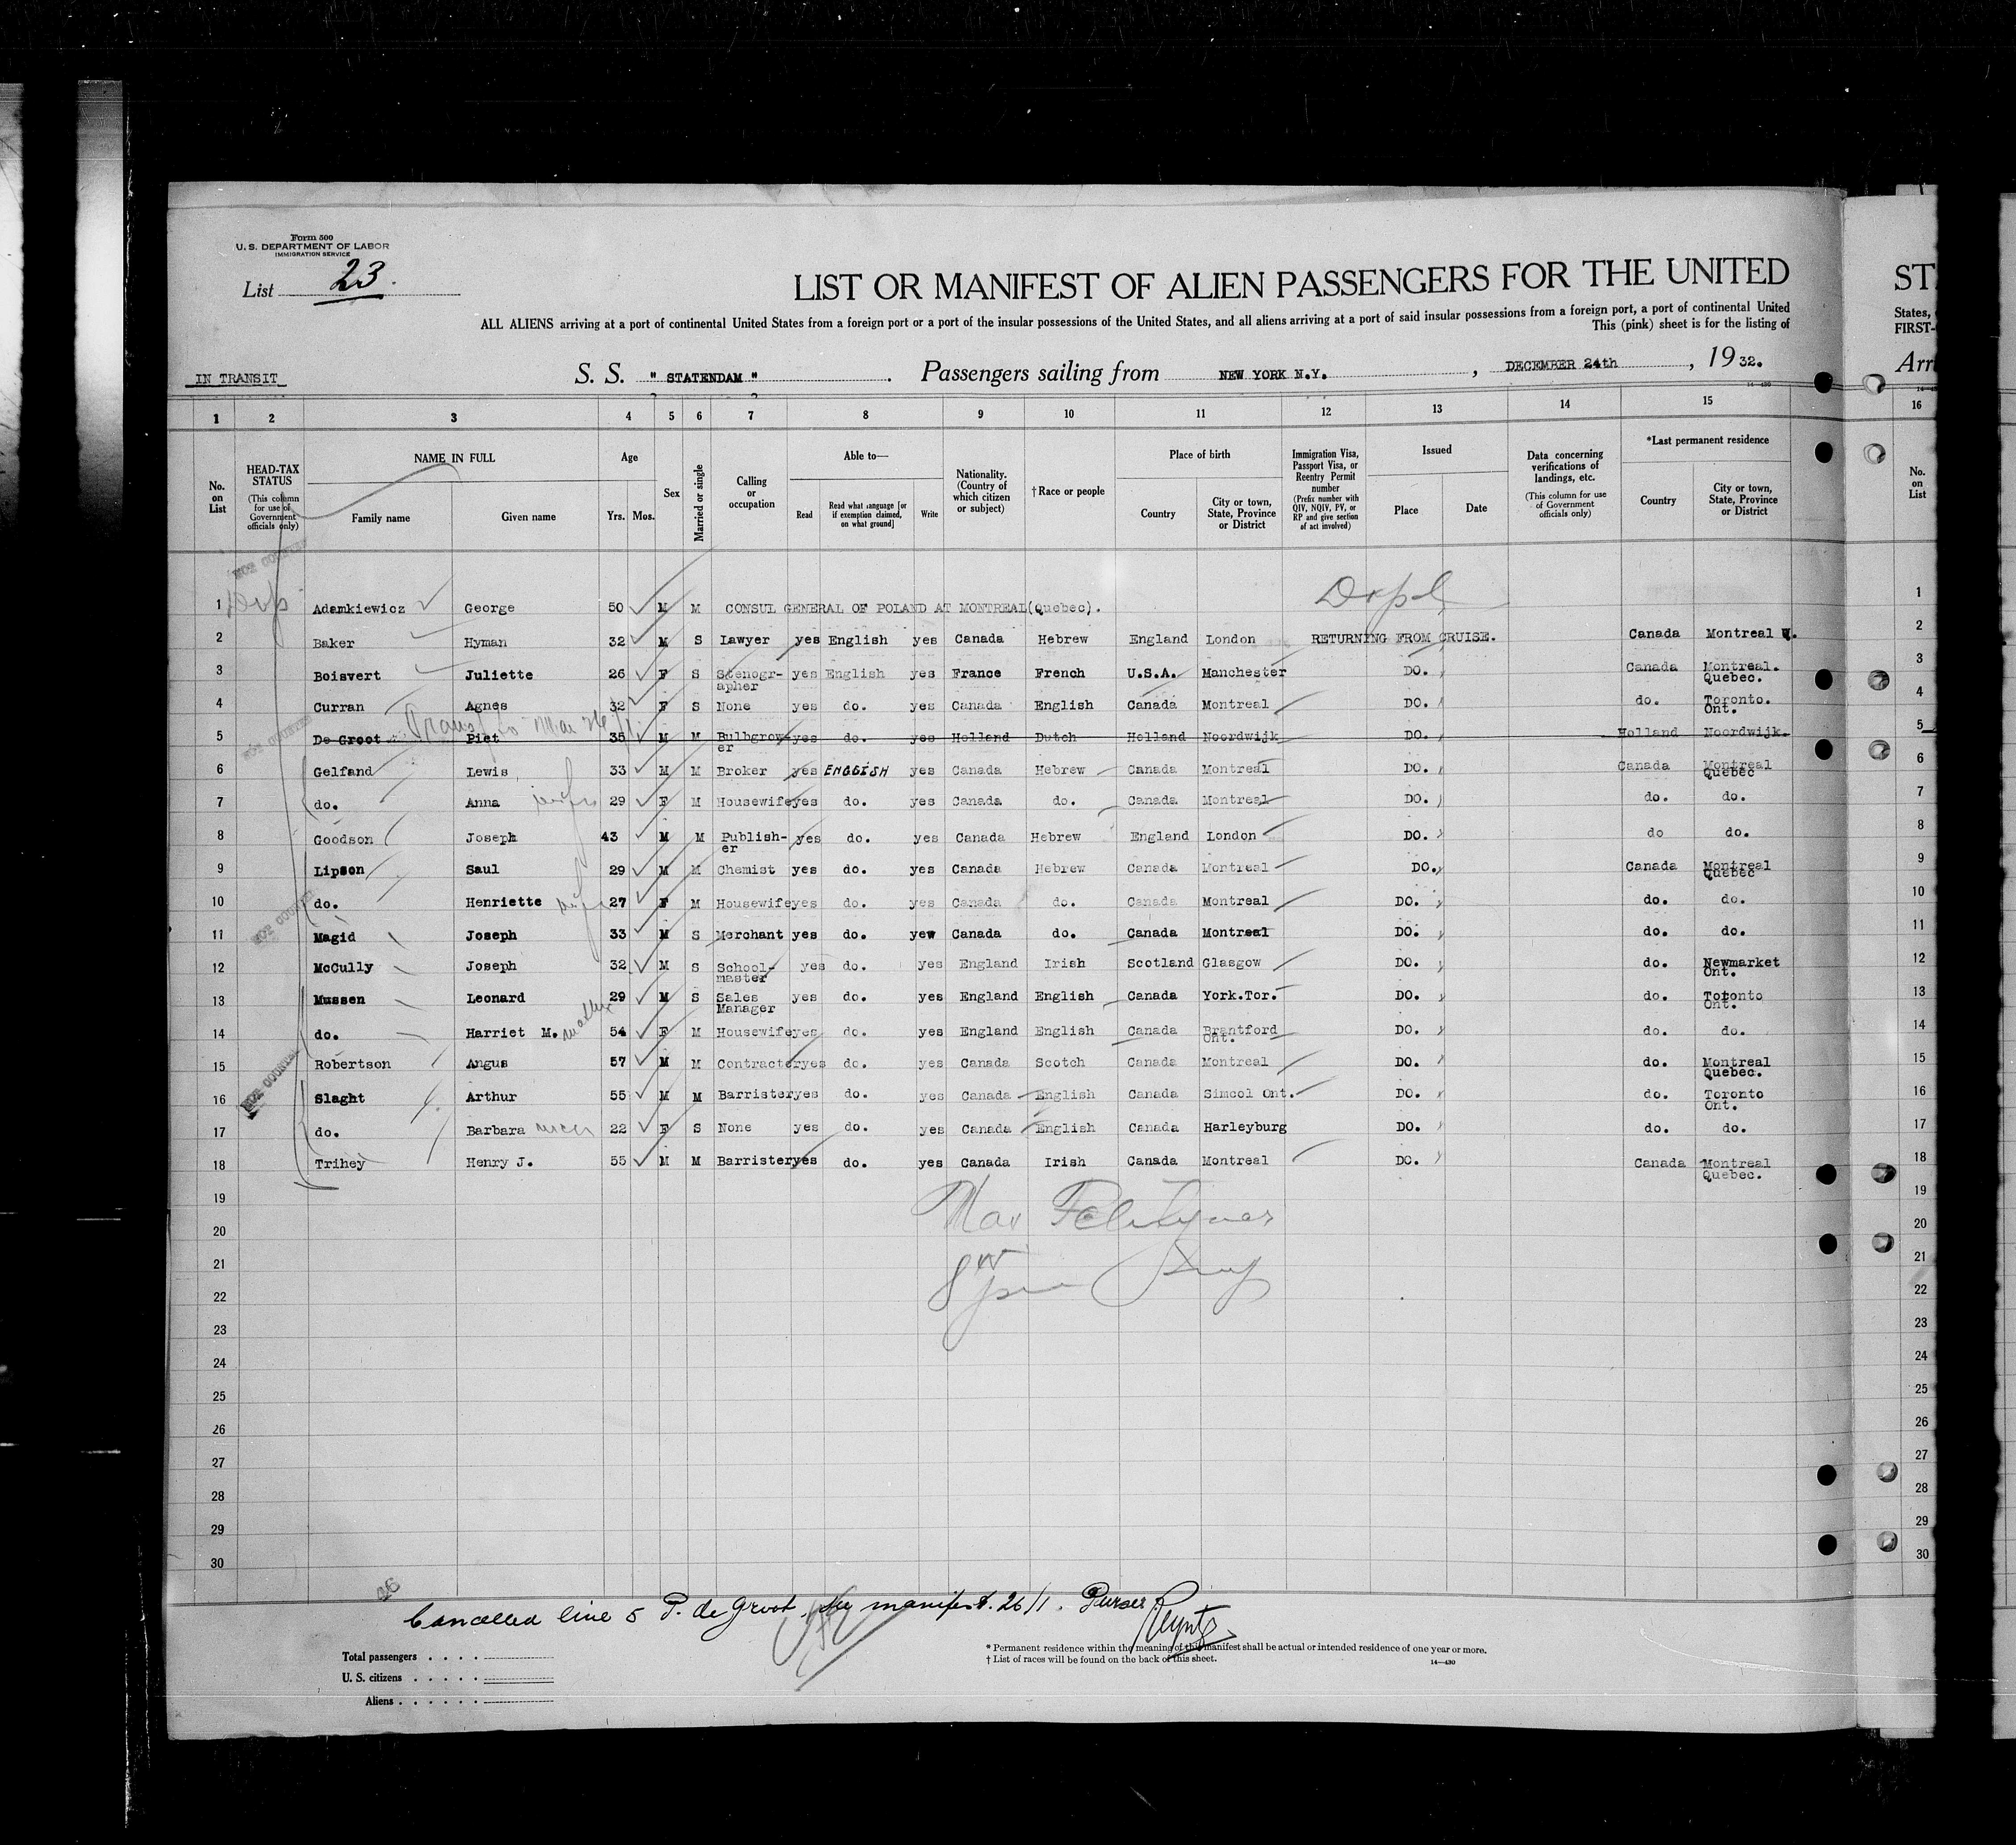 Form 500
U. S. DEPARTMENT OF LABOR
IMMIGRATION SERVICE
List 23.
LIST OR MANIFEST OF ALIEN PASSENGERS FOR THE UNITED
ALL ALIENS arriving at a port of continental United States from a foreign port or a port of the insular possessions of the United States, and all aliens arriving at a port of said insular possessions from a foreign port, a port of continental United
This (pink) sheet is for the listing of
IN TRANSIT S. S. " STATENDAM " . Passengers sailing from NEW YORK N.Y. , DECEMBER 24th , 1932.
14—430
1 2 3 4 5 6 7 8 9 10 11 12 13 14 15
No. on List
HEAD-TAX STATUS (This column for use of Government officials only)
NAME IN FULL
Family name Given name
Age
Yrs. Mos.
Sex
Married or single
Calling or occupation
Able to—
Read Read what language [or if exemption claimed, on what ground] Write
Nationality. (Country of which citizen or subject)
†Race or people
Place of birth
Country City or town, State, Province or District
Immigration Visa, Passport Visa, or Reentry Permit number (Prefix number with QIV, NQIV, PV, or RP and give section of act involved)
Issued
Place Date
Data concerning verifications of landings, etc. (This column for use of Government officials only)
*Last permanent residence
Country City or town, State, Province or District
NOT COUNTED
1 Adamkiewicz George 50 M M CONSUL GENERAL OF POLAND AT MONTREAL(Quebec).
2 Baker Hyman 32 M S Lawyer yes English yes Canada Hebrew England London RETURNING FROM CRUISE. Canada Montreal Q.
3 Boisvert Juliette 26 F S Stenogr- yes English yes France French U.S.A. Manchester DO. Canada Montreal.
apher Quebec.
4 Curran Agnes 32 F S None yes do. yes Canada English Canada Montreal DO. do. Toronto.
Ont.
NOT COUNTED
5 De Groot Piet 35 M M Bulbgrow- yes do. yes Holland Dutch Holland Noordwijk DO. Holland Noordwijk.
er
6 Gelfand Lewis 33 M M Broker yes ENGLISH yes Canada Hebrew Canada Montreal DO. Canada Montreal
Quebec
7 do. Anna wife 29 F M Housewife yes do. yes Canada do. Canada Montreal DO. do. do.
8 Goodson Joseph 43 M M Publish- yes do. yes Canada Hebrew England London DO. do do.
er
9 Lipson Saul 29 M M Chemist yes do. yes Canada Hebrew Canada Montreal DO. Canada Montreal
Quebec
10 do. Henriette wife 27 F M Housewife yes do. yes Canada do. Canada Montreal DO. do. do.
NOT COUNTED
11 Magid Joseph 33 M S Merchant yes do. yew Canada do. Canada Montreal DO. do. do.
12 McCully Joseph 32 M S School- yes do. yes England Irish Scotland Glasgow DO. do. Newmarket
master Ont.
13 Mussen Leonard 29 M S Sales yes do. yes England English Canada York.Tor. DO. do. Toronto
Manager Ont.
14 do. Harriet M. mother 54 F M Housewife yes do. yes England English Canada Brantford DO. do. do.
Ont.
15 Robertson Angus 57 M M Contractor yes do. yes Canada Scotch Canada Montreal DO. do. Montreal
Quebec.
NOT COUNTED
16 Slaght Arthur 55 M M Barrister yes do. yes Canada English Canada Simcol Ont. DO. do. Toronto
Ont.
17 do. Barbara 22 F S None yes do. yes Canada English Canada Harleyburg DO. do. do.
18 Trihey Henry J. 55 M M Barrister yes do. yes Canada Irish Canada Montreal DO. Canada Montreal
Quebec.
19
20
21
22
23
24
25
26
27
28
29
30
Cancelled line 5 P. de Groot. See manifest. 26/1. Purser
Total passengers
U. S. citizens
Aliens
* Permanent residence within the meaning of this manifest shall be actual or intended residence of one year or more.
† List of races will be found on the back of this sheet.
14—430
ST
States,
FIRST-
Arri
16
No. on List
1
2
3
4
5
6
7
8
9
10
11
12
13
14
15
16
17
18
19
20
21
22
23
24
25
26
27
28
29
30